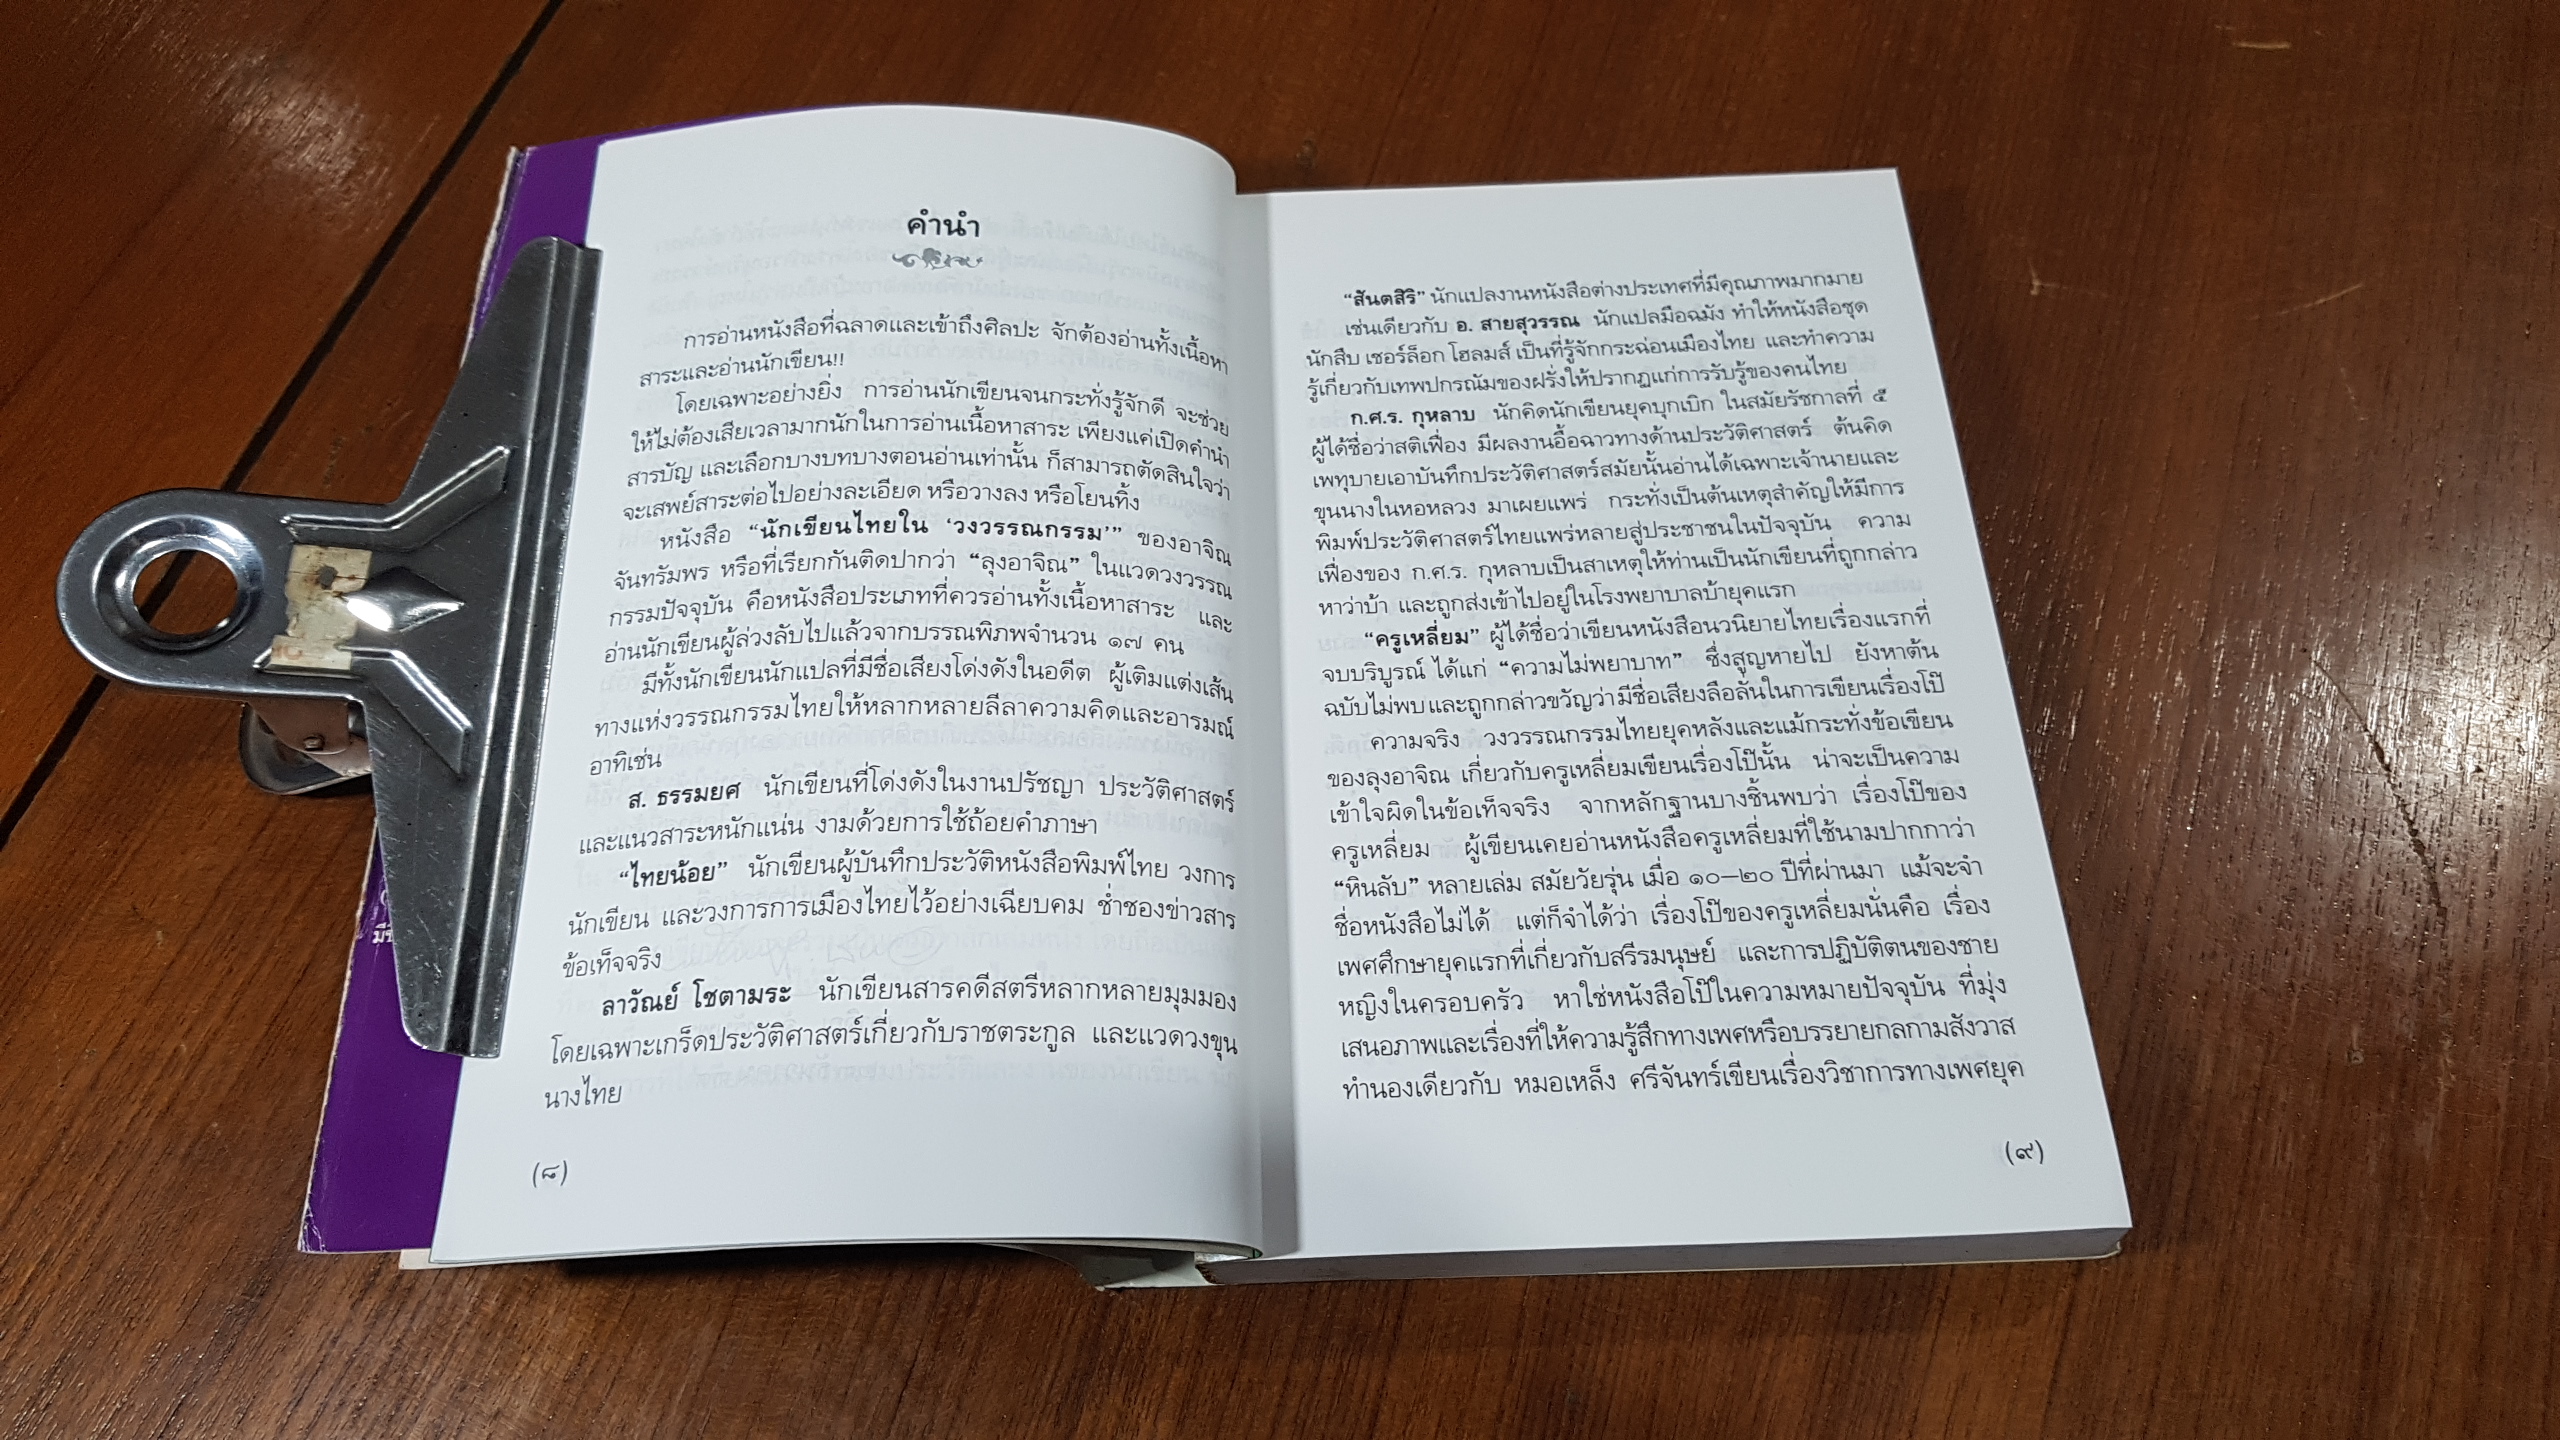 คำนำ
การอ่านหนังสือที่ฉลาดและเข้าถึงศิลปะ จักต้องอ่านทั้งเนื้อหา
สาระและอ่านนักเขียน!!
โดยเฉพาะอย่างยิ่ง การอ่านนักเขียนจนกระทั่งรู้จักดี จะช่วย
ให้ไม่ต้องเสียเวลามากนักในการอ่านเนื้อหาสาระ เพียงแค่เปิดคำนำ
สารบัญ และเลือกบางบทบางตอนอ่านเท่านั้น ก็สามารถตัดสินใจว่า
จะเสพย์สาระต่อไปอย่างละเอียด หรือวางลง หรือโยนทิ้ง
หนังสือ “นักเขียนไทยใน ‘วงวรรณกรรม’” ของอาจิณ
จันทรัมพร หรือที่เรียกกันติดปากว่า “ลุงอาจิณ” ในแวดวงวรรณ
กรรมปัจจุบัน คือหนังสือประเภทที่ควรอ่านทั้งเนื้อหาสาระ และ
อ่านนักเขียนผู้ล่วงลับไปแล้วจากบรรณพิภพจำนวน ๑๗ คน
มีทั้งนักเขียนนักแปลที่มีชื่อเสียงโด่งดังในอดีต ผู้เติมแต่งเส้น
ทางแห่งวรรณกรรมไทยให้หลากหลายลีลาความคิดและอารมณ์
อาทิเช่น
ส. ธรรมยศ นักเขียนที่โด่งดังในงานปรัชญา ประวัติศาสตร์
และแนวสาระหนักแน่น งามด้วยการใช้ถ้อยคำภาษา
“ไทยน้อย” นักเขียนผู้บันทึกประวัติหนังสือพิมพ์ไทย วงการ
นักเขียน และวงการการเมืองไทยไว้อย่างเฉียบคม ช่ำชองข่าวสาร
ข้อเท็จจริง
ลาวัณย์ โชตามระ นักเขียนสารคดีสตรีหลากหลายมุมมอง
โดยเฉพาะเกร็ดประวัติศาสตร์เกี่ยวกับราชตระกูล และแวดวงขุน
นางไทย
(๘)
“สันตสิริ” นักแปลงานหนังสือต่างประเทศที่มีคุณภาพมากมาย
เช่นเดียวกับ อ. สายสุวรรณ นักแปลมือฉมัง ทำให้หนังสือชุด
นักสืบ เชอร์ล็อก โฮลมส์ เป็นที่รู้จักกระฉ่อนเมืองไทย และทำความ
รู้เกี่ยวกับเทพปกรณัมของฝรั่งให้ปรากฏแก่การรับรู้ของคนไทย
ก.ศ.ร. กุหลาบ นักคิดนักเขียนยุคบุกเบิก ในสมัยรัชกาลที่ ๕
ผู้ได้ชื่อว่าสติเฟื่อง มีผลงานอื้อฉาวทางด้านประวัติศาสตร์ ต้นคิด
เพทุบายเอาบันทึกประวัติศาสตร์สมัยนั้นอ่านได้เฉพาะเจ้านายและ
ขุนนางในหอหลวง มาเผยแพร่ กระทั่งเป็นต้นเหตุสำคัญให้มีการ
พิมพ์ประวัติศาสตร์ไทยแพร่หลายสู่ประชาชนในปัจจุบัน ความ
เฟื่องของ ก.ศ.ร. กุหลาบเป็นสาเหตุให้ท่านเป็นนักเขียนที่ถูกกล่าว
หาว่าบ้า และถูกส่งเข้าไปอยู่ในโรงพยาบาลบ้ายุคแรก
“ครูเหลี่ยม” ผู้ได้ชื่อว่าเขียนหนังสือนวนิยายไทยเรื่องแรกที่
จบบริบูรณ์ ได้แก่ “ความไม่พยาบาท” ซึ่งสูญหายไป ยังหาต้น
ฉบับไม่พบ และถูกกล่าวขวัญว่ามีชื่อเสียงลือลั่นในการเขียนเรื่องโป๊
ความจริง วงวรรณกรรมไทยยุคหลังและแม้กระทั่งข้อเขียน
ของลุงอาจิณ เกี่ยวกับครูเหลี่ยมเขียนเรื่องโป๊นั้น น่าจะเป็นความ
เข้าใจผิดในข้อเท็จจริง จากหลักฐานบางชิ้นพบว่า เรื่องโป๊ของ
ครูเหลี่ยม ผู้เขียนเคยอ่านหนังสือครูเหลี่ยมที่ใช้นามปากกาว่า
“หินลับ” หลายเล่ม สมัยวัยรุ่น เมื่อ ๑๐—๒๐ ปีที่ผ่านมา แม้จะจำ
ชื่อหนังสือไม่ได้ แต่ก็จำได้ว่า เรื่องโป๊ของครูเหลี่ยมนั่นคือ เรื่อง
เพศศึกษายุคแรกที่เกี่ยวกับสรีรมนุษย์ และการปฏิบัติตนของชาย
หญิงในครอบครัว หาใช่หนังสือโป๊ในความหมายปัจจุบัน ที่มุ่ง
เสนอภาพและเรื่องที่ให้ความรู้สึกทางเพศหรือบรรยายกลกามสังวาส
ทำนองเดียวกับ หมอเหล็ง ศรีจันทร์เขียนเรื่องวิชาการทางเพศยุค
(๙)